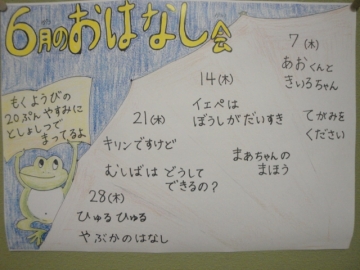 6月のおはなし会
もくようびの
20ぷんやすみに
としょしつで
まってるよ
7(木)
あおくんと
きいろちゃん
てがみを
ください
14(木)
イェペは
ぼうしがだいすき
まあちゃんの
まほう
21(木)
キリンですけど
むしばは どうして
できるの?
28(木)
ひゅるひゅる
やぶかのはなし